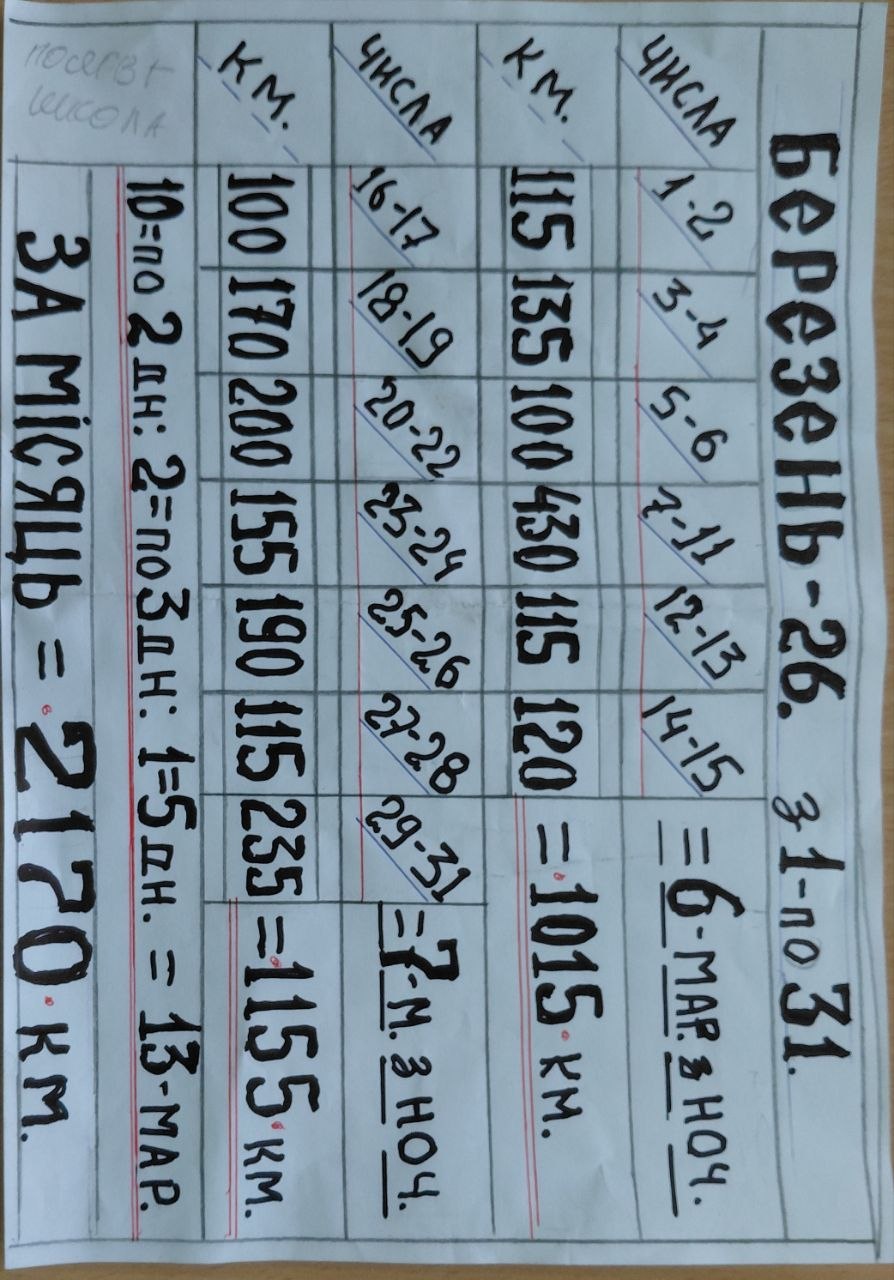 БЕРЕЗЕНЬ-26. з 1-по 31.
ЧИСЛА 1-2 3-4 5-6 7-11 12-13 14-15 = 6-МАР. З НОЧ.
КМ. 115 135 100 430 115 120 = 1015 КМ.
ЧИСЛА 16-17 18-19 20-22 23-24 25-26 27-28 29-31 = 7-М. З НОЧ.
КМ. 100 170 200 155 190 115 235 = 1155 КМ.
10=по 2 дн: 2=по 3 дн: 1=5 дн. = 13-МАР.
ШКОЛА
ЗА МІСЯЦЬ = 2170 КМ.